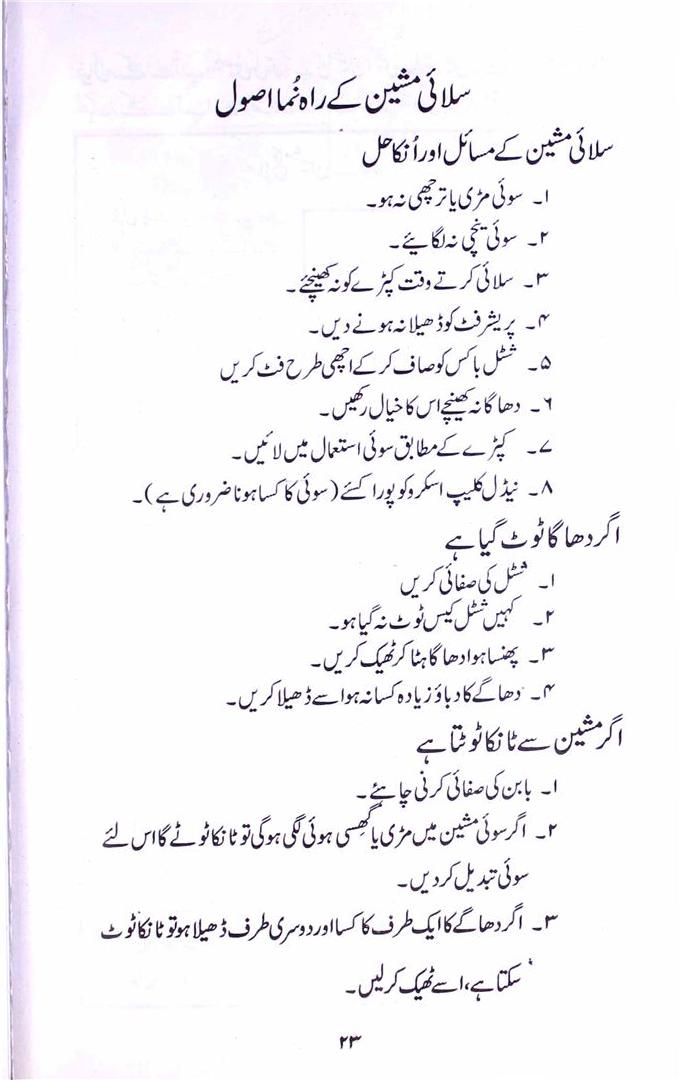 سلائی مشین کے راہ نُما اصول
سلائی مشین کے مسائل اور اُنکا حل
۱۔ سوئی مڑی یا ترچھی نہ ہو۔
۲۔ سوئی نیچی نہ لگائیے۔
۳۔ سلائی کرتے وقت کپڑے کو نہ کھینچئے۔
۴۔ پریشر فٹ کو ڈھیلا نہ ہونے دیں۔
۵۔ شٹل باکس کو صاف کر کے اچھی طرح فٹ کریں
۶۔ دھاگا نہ کھینچے اس کا خیال رکھیں۔
۷۔ کپڑے کے مطابق سوئی استعمال میں لائیں۔
۸۔ نیڈل کلیپ اسکرو کو پورا کسئے (سوئی کا کسا ہونا ضروری ہے)۔
اگر دھاگا ٹوٹ گیا ہے
۱۔ شٹل کی صفائی کریں
۲۔ کہیں شٹل کیس ٹوٹ نہ گیا ہو۔
۳۔ پھنسا ہوا دھاگا ہٹا کر ٹھیک کریں۔
۴۔ دھاگے کا دباؤ زیادہ کسا نہ ہو اسے ڈھیلا کریں۔
اگر مشین سے ٹانکا ٹوٹتا ہے
۱۔ بابن کی صفائی کرنی چاہئے۔
۲۔ اگر سوئی مشین میں مڑی یا گھِسی ہوئی لگی ہوگی تو ٹانکا ٹوٹے گا اس لئے
سوئی تبدیل کر دیں۔
۳۔ اگر دھاگے کا ایک طرف کا کسا اور دوسری طرف ڈھیلا ہو تو ٹانکا ٹوٹ
سکتا ہے، اسے ٹھیک کر لیں۔
۲۳